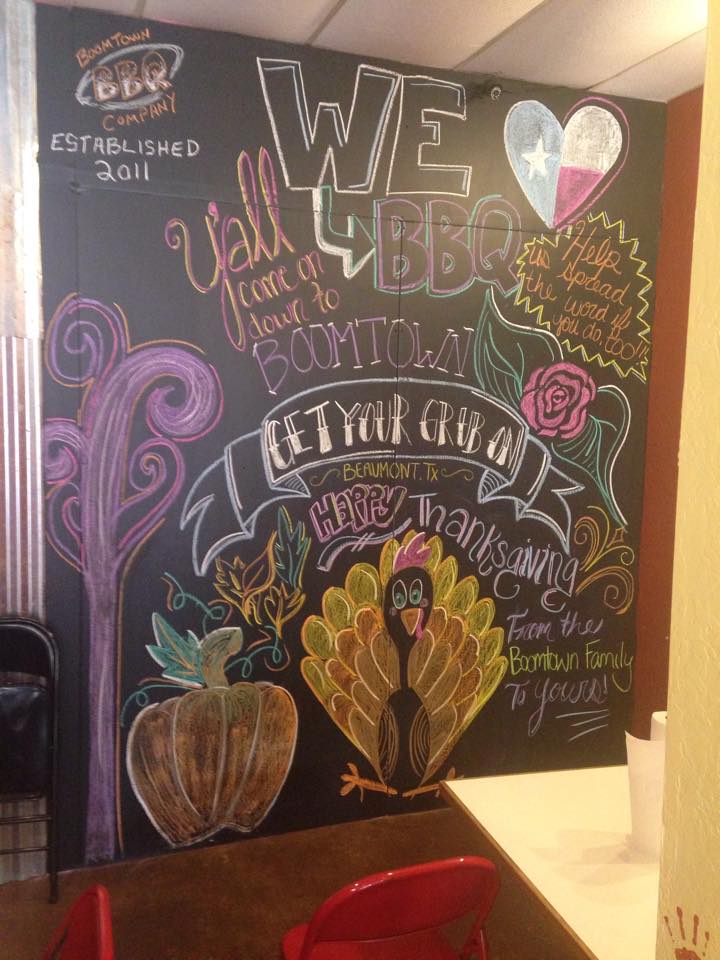 BOOMTOWN
BBQ
COMPANY
ESTABLISHED
2011
WE
BBQ
Help
us spread
the word if
you do, too!!
Y'all
come on
down to
BOOMTOWN
GET YOUR GRUB ON
BEAUMONT. TX
HAPPY Thanksgiving
From the
Boomtown Family
To Yours!